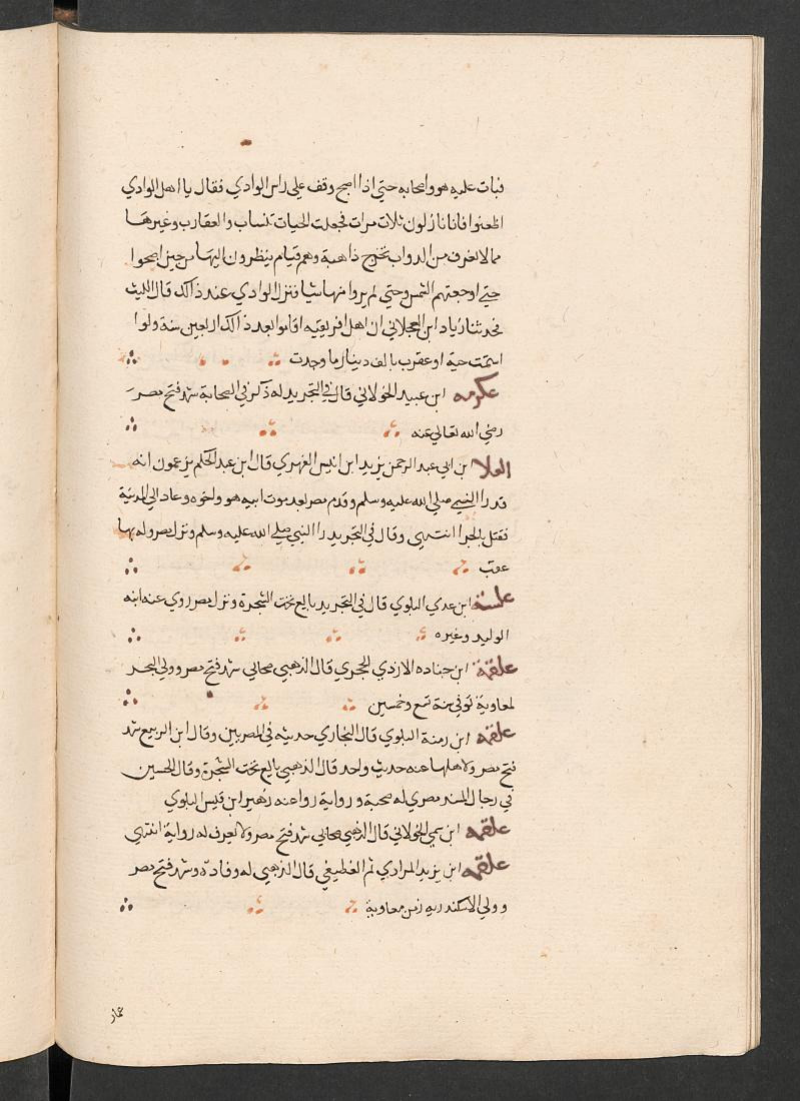 فبات عليه هو واصحابه حتي اذا اصبح وقف علي راس الوادي فقال يا اهل الوادي
اظعنوا فانا نازلون ثلاث مرات فجعلت الحيات تنساب والعقارب وغيرها
مما لا نعرف من الدواب تخرج ذاهبة وهم قيام ينظرون اليها من حين اصبحوا
حتي اوجعتهم الشمس وحتي لم يروا منها شيا فنزل الوادي عند ذالك قال الليث
فحدثنا زياد ابن العجلاني ان اهل افريقيه اقاموا بعد ذالك اربعين سنة ولوا
التمست حية او عقرب بالف دينار ما وجدت
عكرمه ابن عبيد الخولاني قال في التجريد له ذكر في الصحابة شهد فتح مصر
رضي الله تعالي عنه
العلا بن ابي عبد الرحمن يزيد ابن انيس الفهري قال ابن عبد الحكم يزعمون انه
قد را النبي صلي الله عليه وسلم وقدم مصر بعد موت ابيه هو واخوه وعاد الي المدينة
فقتل بالحرا انتهي وقال في التجريد را النبي صلي الله عليه وسلم ونزل مصر وله بها
عقب
علسة ابن عدي البلوي قال في التجريد بايع تحت الشجرة ونزل مصر روي عنه ابنه
الوليد وغيره
علقمة ابن جناده الازدي الحجري قال الذهبي صحابي شهد فتح مصر وولي البحر
لمعاوية توفي سنة تسع وخمسين
علقمه ابن رمثة البلوي قال البخاري حديثه في المصريين وقال ابن الربيع شهد
فتح مصر ولاهلها عنه حديث واحد قال الذهبي بايع تحت الشجرة وقال الحسين
في رجال المسند مصري له صحبة ورواية روا عنه زهير ابن قيس البلوي
علقمه ابن سمي الخولاني قال الذهبي صحابي شهد فتح مصر ولا يعرف له رواية انتهي
علقمه ابن يزيد المرادي ثم الغطيفي قال الذهبي له وفادة وشهد فتح مصر
وولي الاسكندريه زمن معاوية
عمار